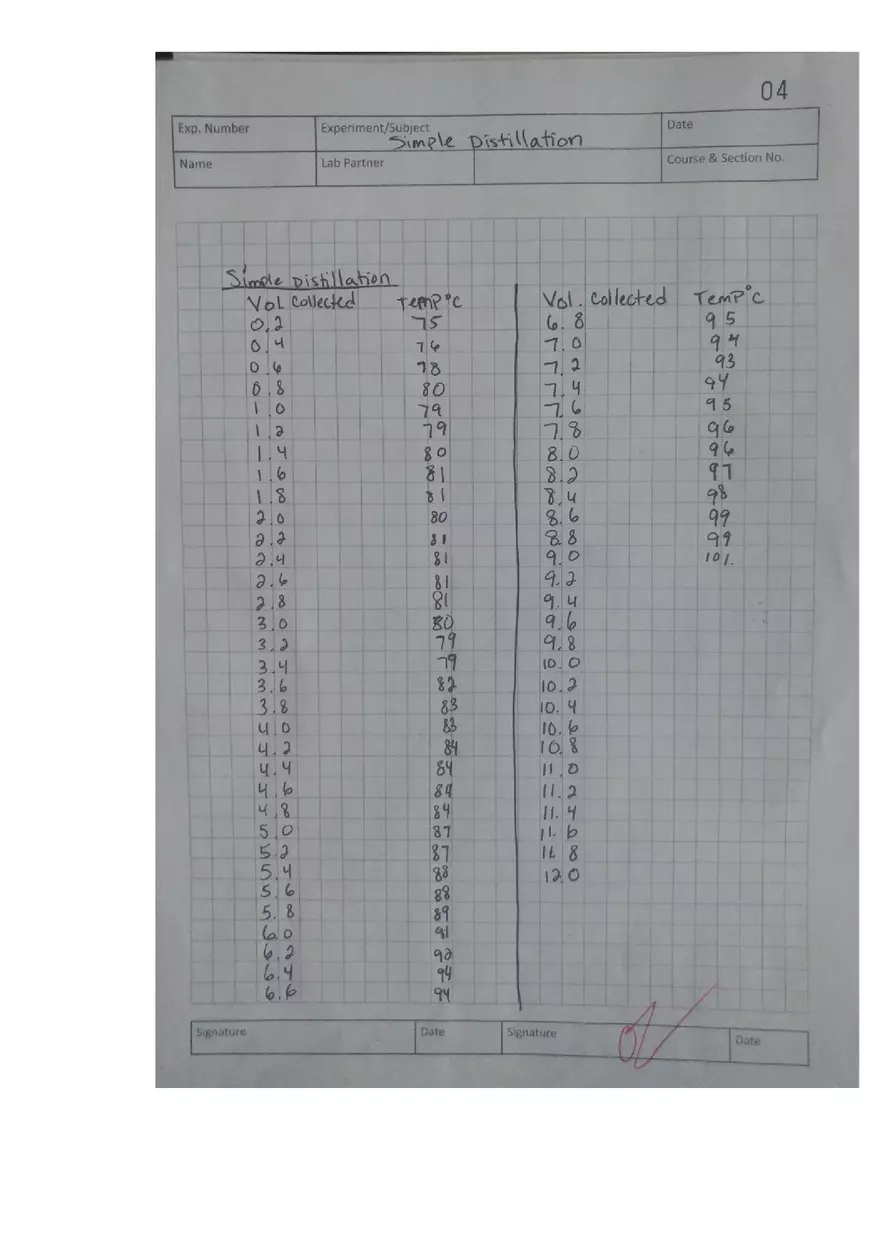 04
Exp. Number
Experiment/Subject
Simple Distillation
Date
Name
Lab Partner
Course & Section No.
Simple Distillation
Vol. Collected Temp°C
0.2 75
0.4 76
0.6 78
0.8 80
1.0 79
1.2 79
1.4 80
1.6 81
1.8 81
2.0 80
2.2 81
2.4 81
2.6 81
2.8 81
3.0 80
3.2 79
3.4 79
3.6 82
3.8 83
4.0 83
4.2 84
4.4 84
4.6 84
4.8 84
5.0 87
5.2 87
5.4 88
5.6 88
5.8 89
6.0 91
6.2 92
6.4 94
6.6 94
Vol. Collected Temp°C
6.8 95
7.0 94
7.2 93
7.4 94
7.6 95
7.8 96
8.0 96
8.2 97
8.4 98
8.6 99
8.8 99
9.0 101.
9.2
9.4
9.6
9.8
10.0
10.2
10.4
10.6
10.8
11.0
11.2
11.4
11.6
11.8
12.0
Signature
Date
Signature
Date